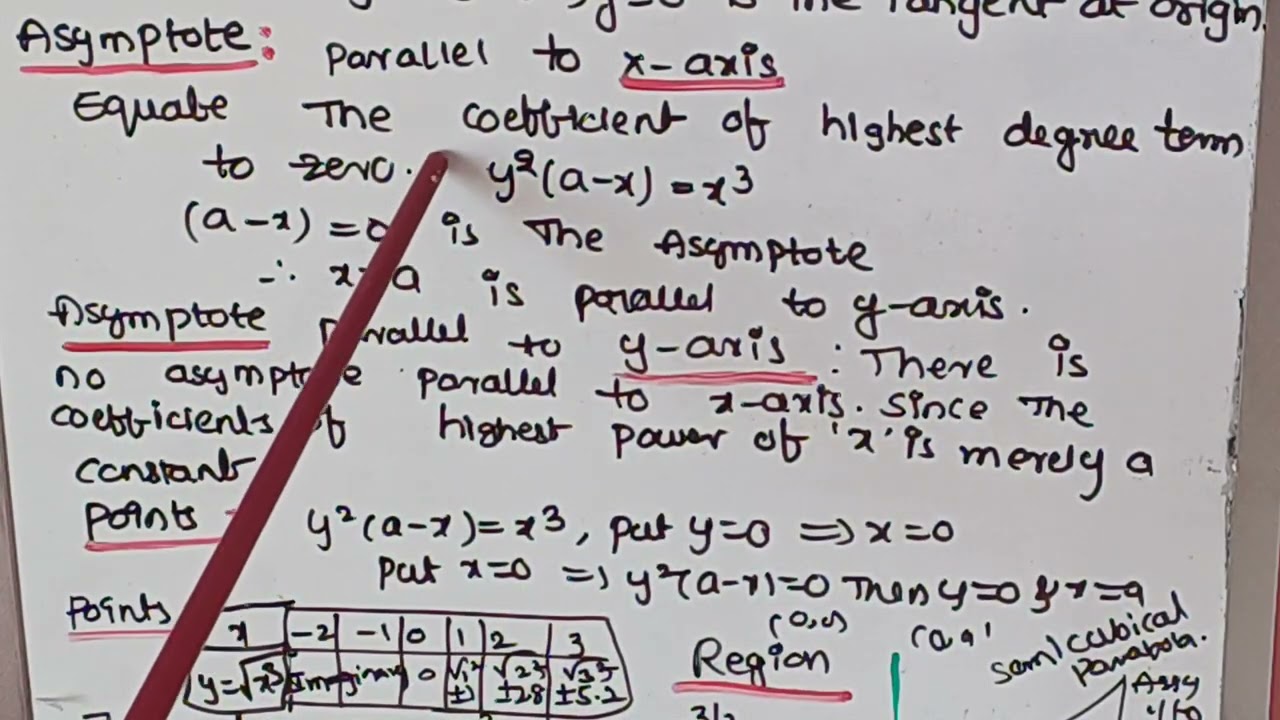 y=0 is the Tangent at origin.
Asymptote: Parallel to x-axis
Equate The coefficient of highest degree term
to zero. y²(a-x) = x³
(a-x) = 0 is The Asymptote
∴ x = a is parallel to y-axis.
Asymptote parallel to y-axis : There is
no asymptote parallel to x-axis. Since The
coefficients of highest power of 'x' is merely a
constant
Points y²(a-x) = x³, put y=0 ⟹ x=0
Put x=0 ⟹ y²(a-x)=0 Then y=0 & x=a
Points (0,0) (a,a)
x -2 -1 0 1 2 3
y=√x³ Imaginary 0 √1³ √2³ √3³
±1 ±2.8 ±5.2
Region
semi cubical
parabola.
Asy
3/2